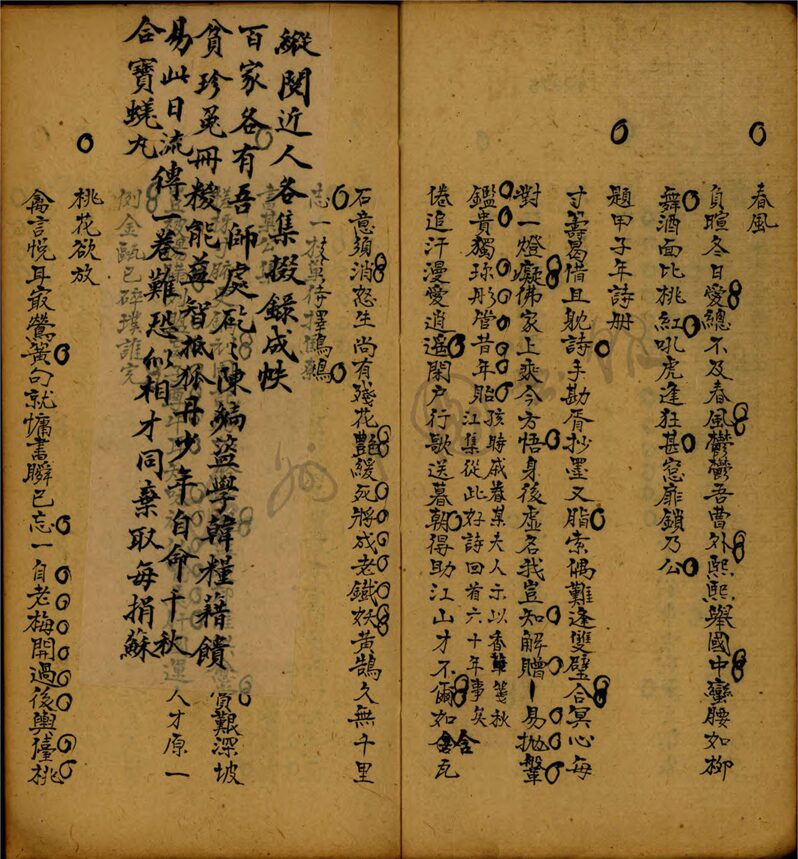 春風
負暄冬日愛總不及春風鬱鬱吾曹外熙熙舉國中蠻腰如柳
舞酒面比桃紅吼虎逢狂甚窓扉鎖乃公
題甲子年詩册
寸籌曷借且躭詩手勘胥抄墨又脂索偶難逢雙璧合冥心每
對一燈癡佛家上乘今方悟身後虛名我豈知解贈一易拋鞶
鑑貴獨珍彤管昔年貽
孩時戚眷某夫人示以香草箋秋
江集從此好詩回首六十年事矣
倦追汗漫愛逍遙閑戶行歌送暮朝得助江山才不爾如含瓦
石意須消怒生尚有殘花艷緩死將成老鐵妖黃鵠久無千里
志一枝單待擇鷦鷯
縱閱近人各集掇錄成帙
百家各有吾師處砭陳編盜學韓糧藉饋
貧珍兎册稜能尊智抵狐丹少年自命千秋
易此日流傳一卷難恐似相才同棄取每捐蘇
合寶蜣丸
貧艱深坡
人才原一
例金甌已碎璞誰完
桃花欲放
禽言悅耳最鶯黃句就慵書瞬已忘一自老梅開過後輿儓桃